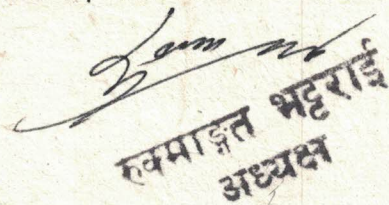 रुक्माङ्गत भट्टराई
अध्यक्ष